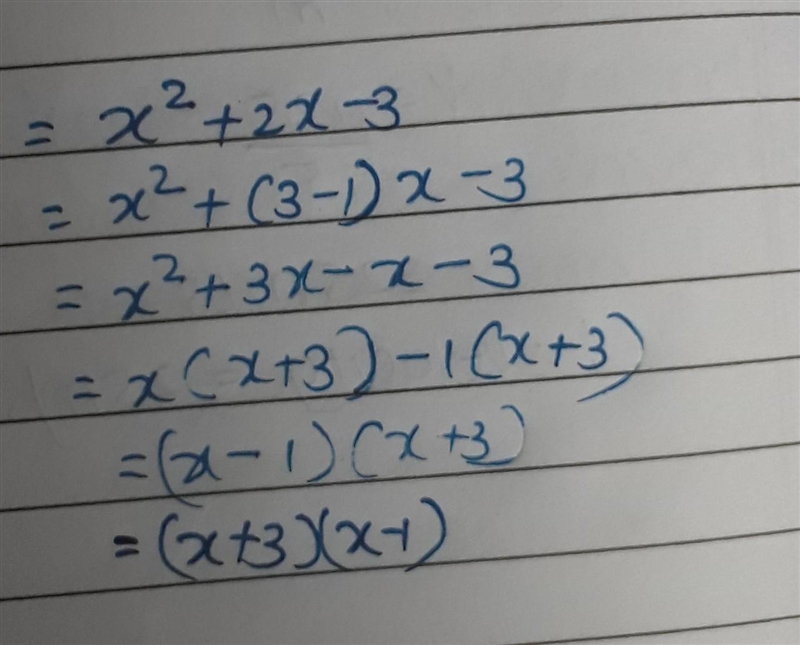 = x² + 2x - 3
= x² + (3 - 1) x - 3
= x² + 3x - x - 3
= x (x + 3) - 1 (x + 3)
= (x - 1) (x + 3)
= (x + 3)(x - 1)